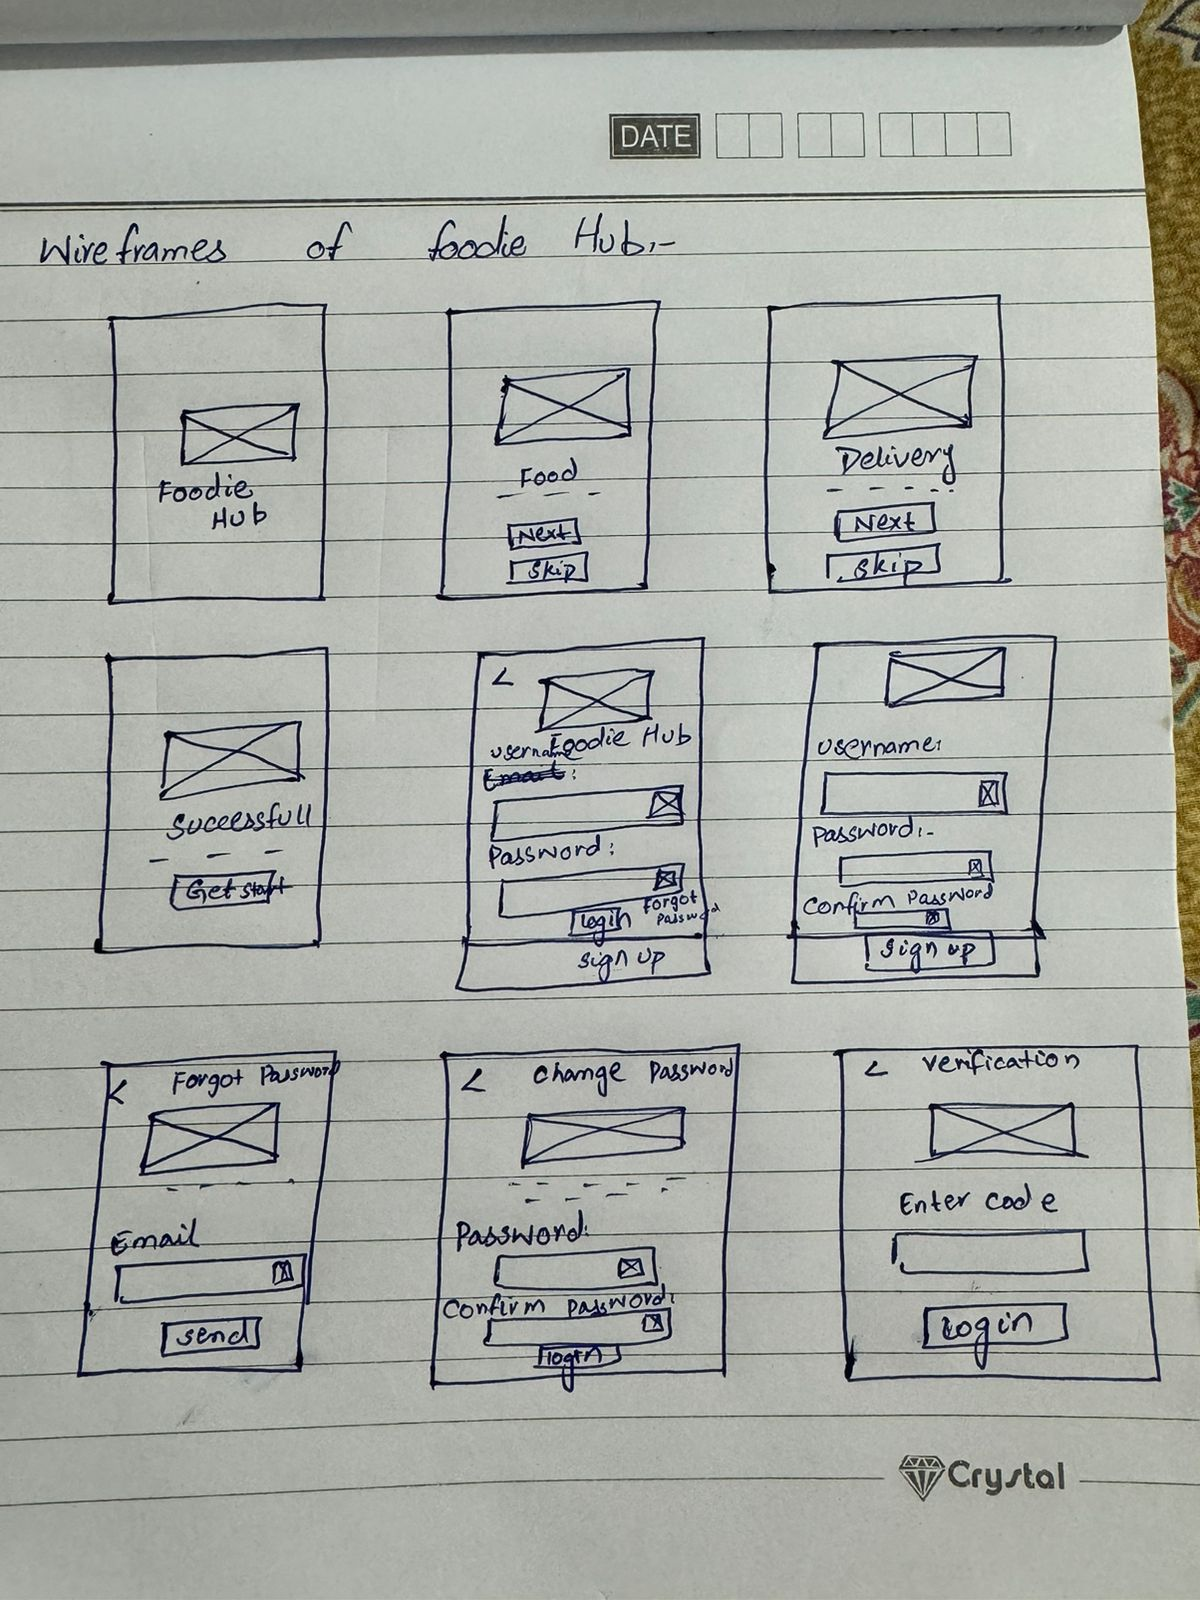 DATE
Wireframes of foodie Hub:-
Foodie
HUb
Food
Next
Skip
Delivery
Next
Skip
Successfull
Get start
<
Foodie Hub
Username
Email:
Password:
Forgot
Password
Login
Sign up
Username:
Password:-
Confirm Password
Sign up
< Forgot Password
Email
Send
< Change Password
Password:
Confirm Password:
login
< Verification
Enter code
Login
Crystal